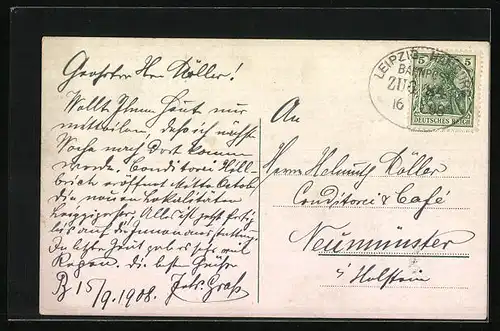 Geehrter Herr Köller!
Wollte Ihnen heut nur
mitteilen, daß ich nächste
Woche nach dort komme
werde. Conditorei Hill-
brich eröffnet Mitte Octob.
die neuen Lokalitäten
Leipzigerstr. Alles ist jetzt fertig
bis auf die Innenausstattung.
In letzter Zeit gab es sehr viel
Regen. die besten Grüße
B 15/9. 1908. Graß
LEIPZIG HAMBURG
BAHNPOST
ZUG
16
5 5
DEUTSCHES REICH
An
Herrn Helmuth Köller
Conditorei & Café
Neumünster
i/Holstein